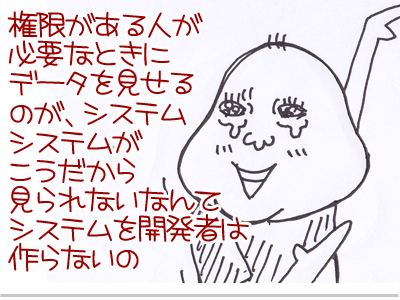 権限がある人が
必要なときに
データを見せる
のが、システム
システムが
こうだから
見られないなんて
システムを開発者は
作らないの